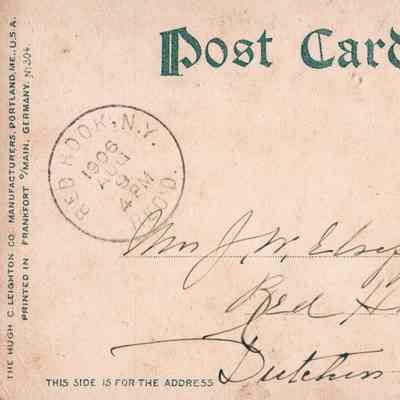 Post Card
THE HUGH C. LEIGHTON CO. MANUFACTURERS, PORTLAND, ME., U.S.A.
PRINTED IN FRANKFORT O/MAIN, GERMANY. № 304.
RED HOOK, N.Y.
1906
AUG
9
4 PM
REC'D.
Mrs J. W. 
Red
Dutchess
THIS SIDE IS FOR THE ADDRESS